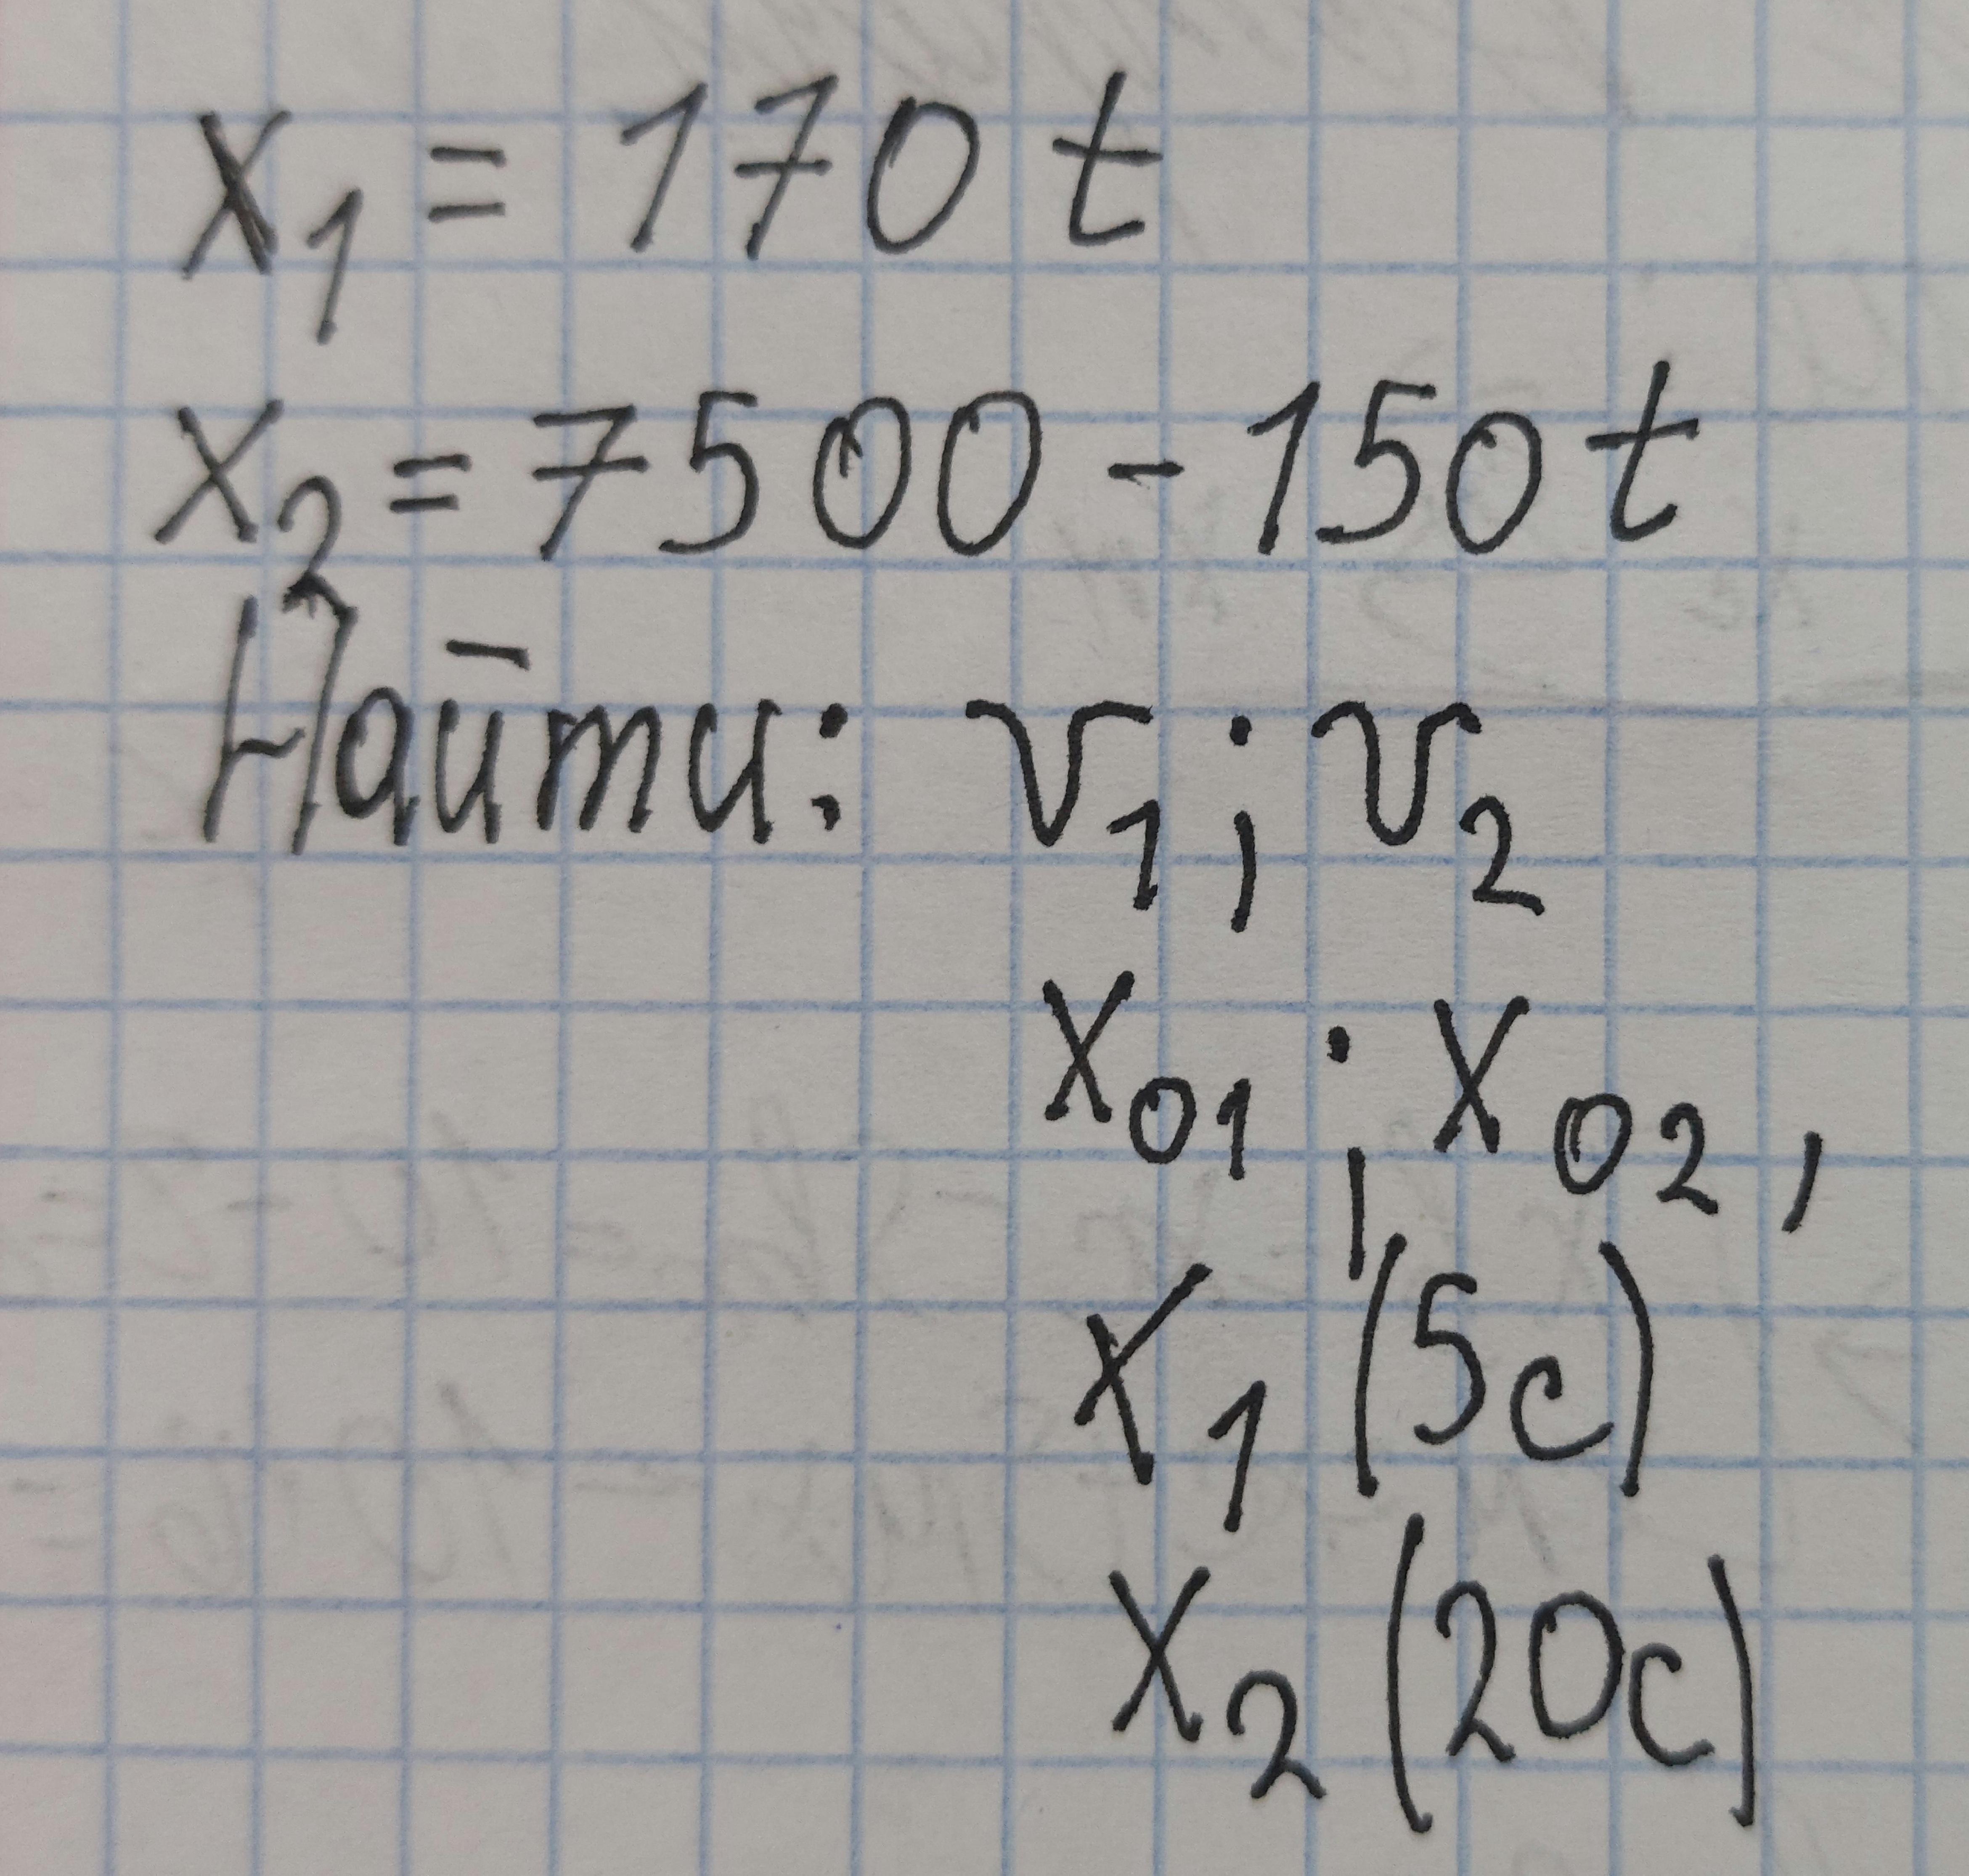 x₁ = 170 t
x₂ = 7500 - 150 t
Найти: v₁; v₂
x₀₁; x₀₂,
x₁ (5с)
x₂ (20с)